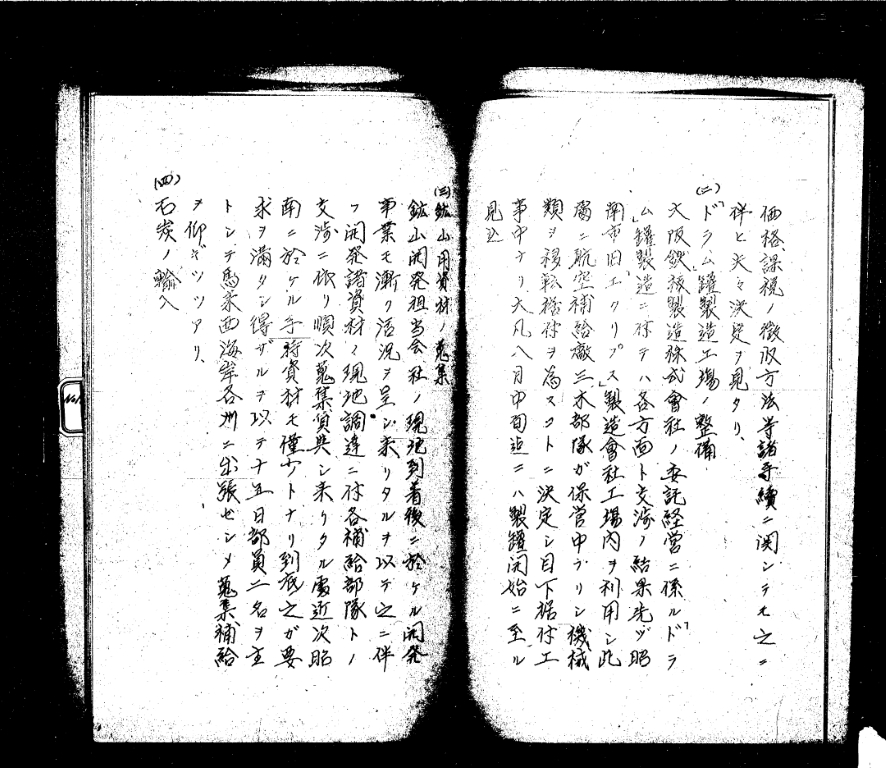 価格課税ノ徴収方法等諸手續ニ関シテモ之ニ
伴ヒ夫々決定ヲ見タリ、
(二)「ドラム」罐製造工場ノ整備
大阪鉄板製造株式會社ノ委託経営ニ係ル「ドラ
ム」罐製造ニ付テハ各方面ト交渉ノ結果先ヅ昭
南市旧「エクリプス」製造會社工場内ヲ利用シ此
處ニ航空補給廠三木部隊ガ保営中ナリシ機械
類ヲ移転据付ヲ為スコトニ決定シ目下据付工
事中ナリ大凡八月中旬迄ニハ製罐開始ニ至ル
見込
(三)鉱山用資材ノ蒐集
鉱山開発担当会社ノ現地到着後ニ於ケル開発
事業モ漸ク活況ヲ呈シ来リタルヲ以テ之ニ伴
フ開発諸資材ノ現地調達ニ付各補給部隊トノ
交渉ニ依リ順次蒐集買典シ来リタル處近次昭
南ニ於ケル手持資材モ僅少トナリ到底之ガ要
求ヲ満タシ得ザルヲ以テ十五日部員二名ヲ主
トシテ馬来西海岸各州ニ出張セシメ蒐集補給
ヲ仰ギツツアリ、
(四)石炭ノ輸入